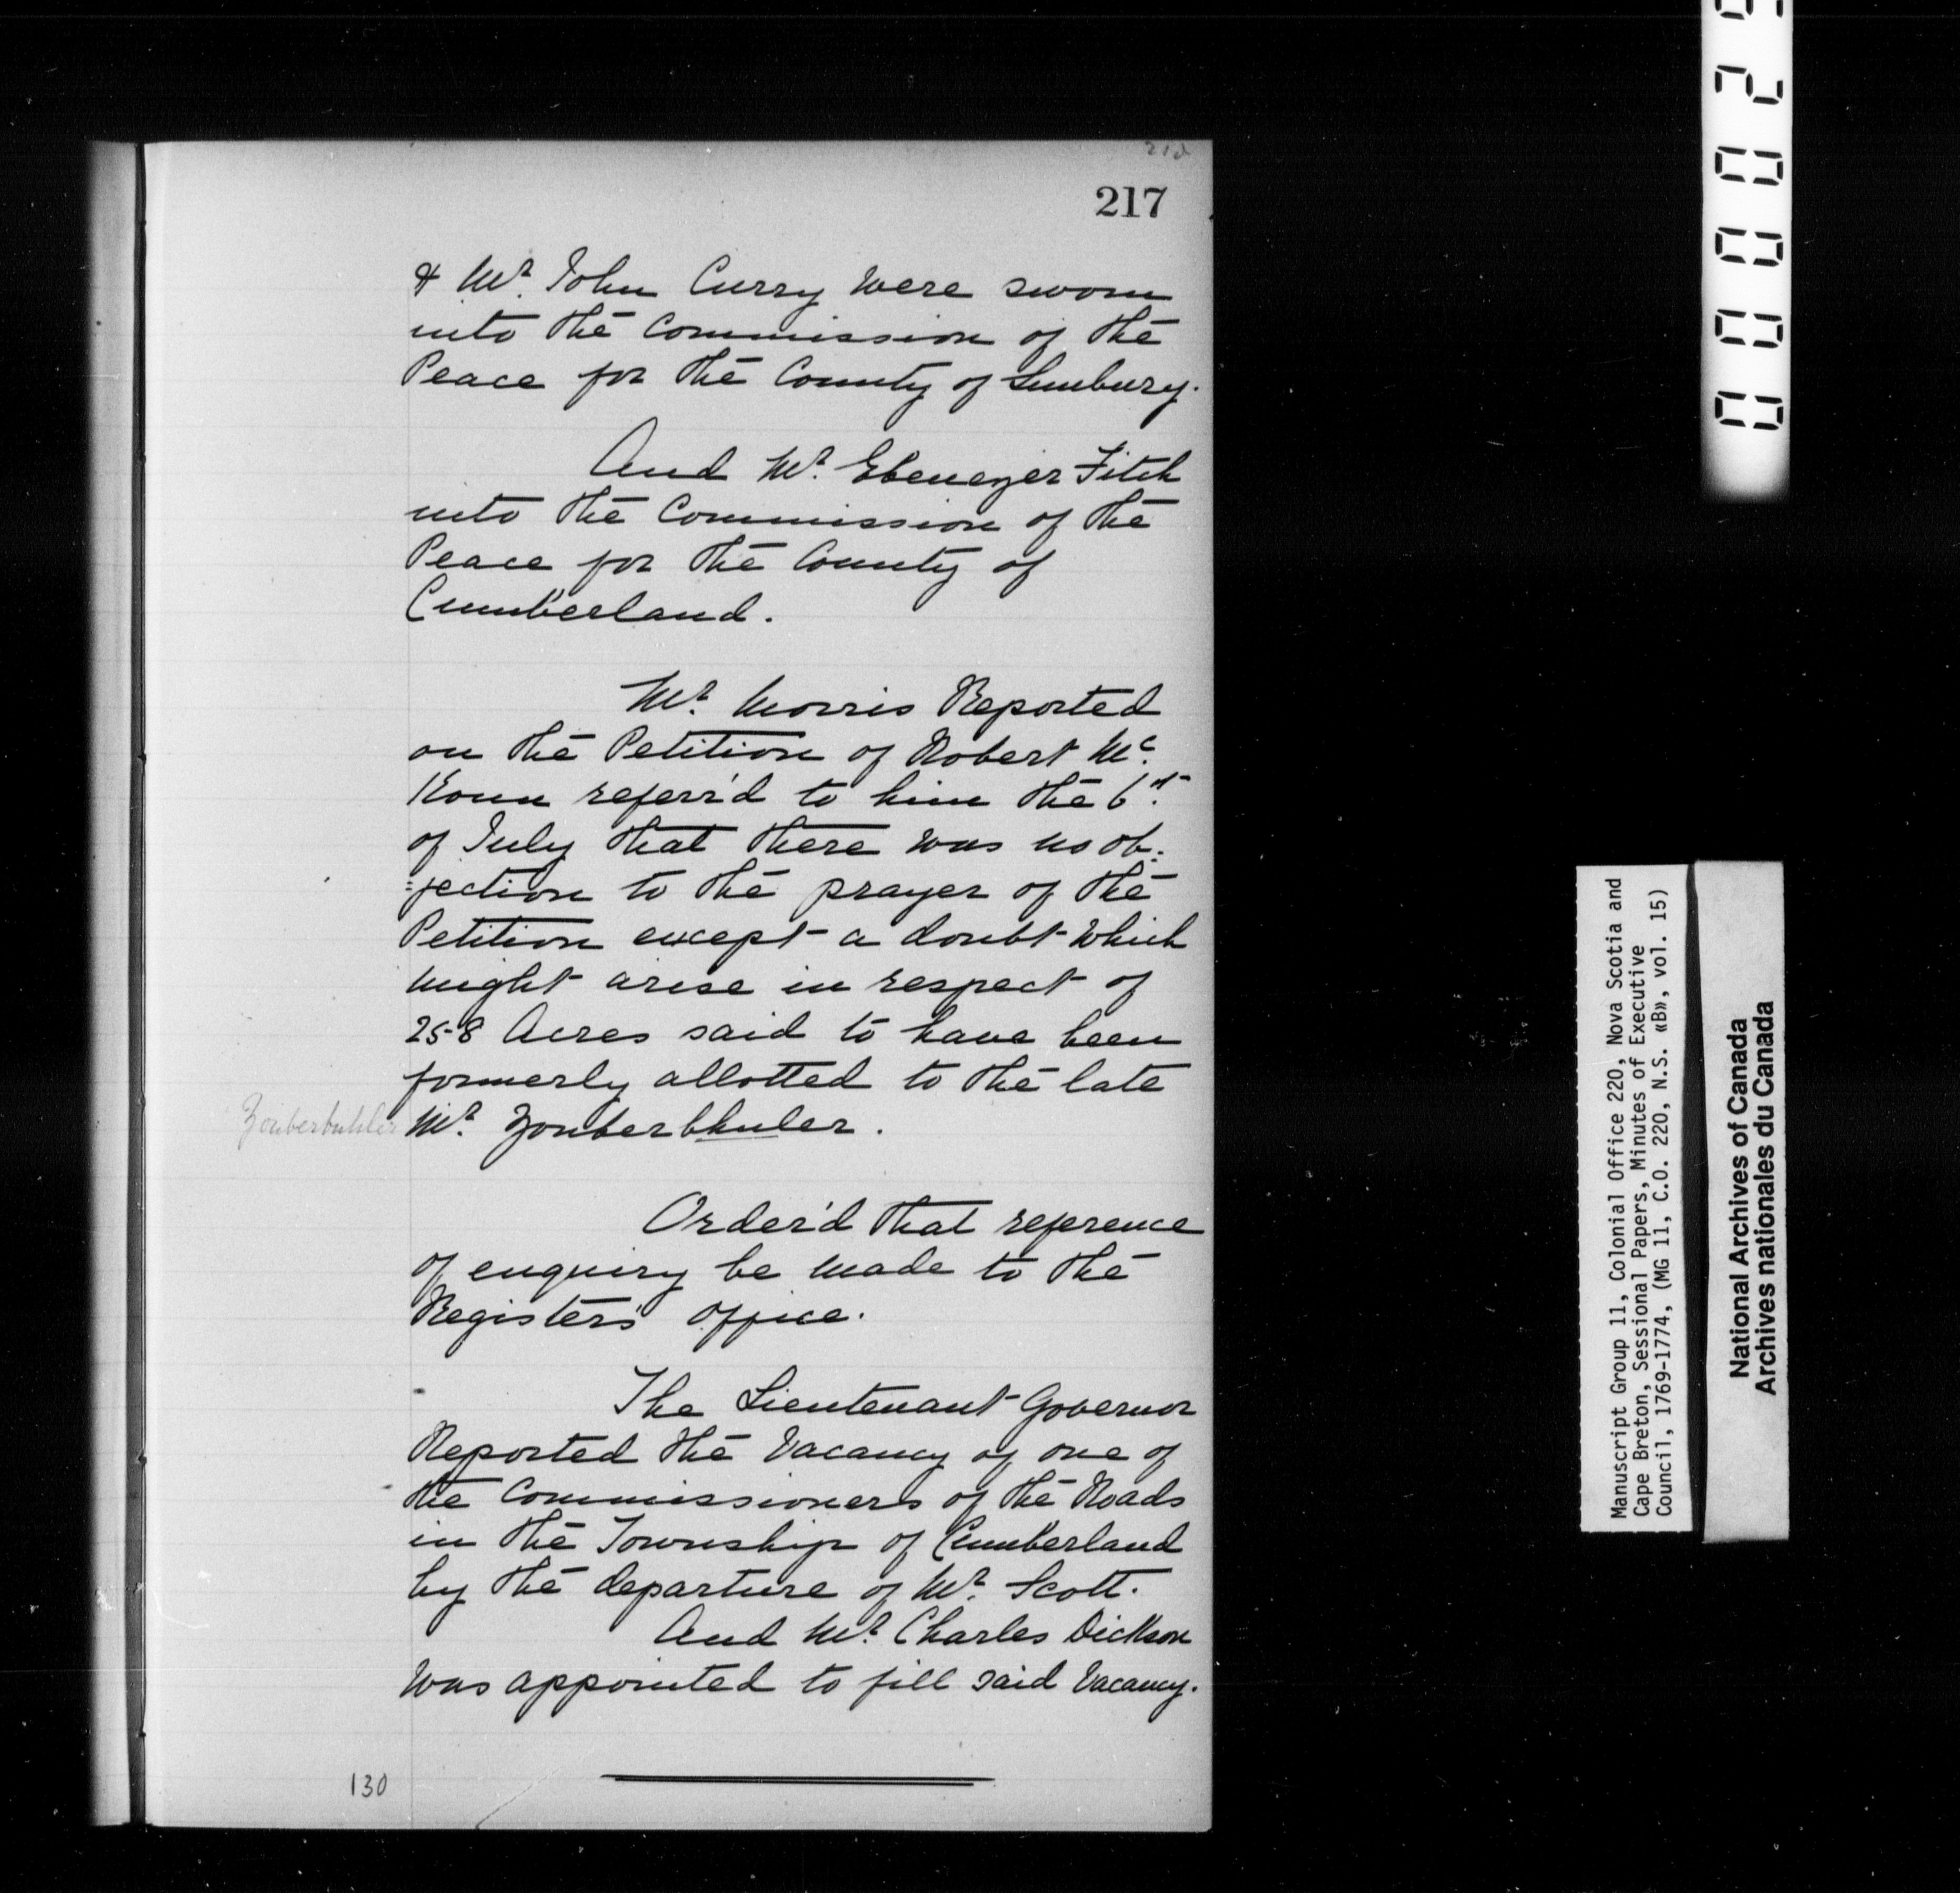 217
& Mr. John Curry were sworn
into the Commission of the
Peace for the County of Sunbury.
And Mr. Ebenezer Fitch
into the Commission of the
Peace for the County of
Cumberland.
Mr. Morris Reported
on the Petition of Robert Mc.
Koun referr'd to him the 6th.
of July that there was no ob:
:jection to the prayer of the
Petition except a doubt which
might arise in respect of
258 Acres said to have been
formerly allotted to the late
Zouberbuhler Mr. Zouberbhuler.
Order'd that reference
of enquiry be made to the
Register's Office.
The Lieutenant Governor
Reported the Vacancy of one of
the Commissioners of the Roads
in the Township of Cumberland
by the departure of Mr. Scott.
And Mr. Charles Dickson
was appointed to fill said Vacancy.
130
Manuscript Group 11, Colonial Office 220, Nova Scotia and
Cape Breton, Sessional Papers, Minutes of Executive
Council, 1769-1774, (MG 11, C.O. 220, N.S. «B», vol. 15)
National Archives of Canada
Archives nationales du Canada